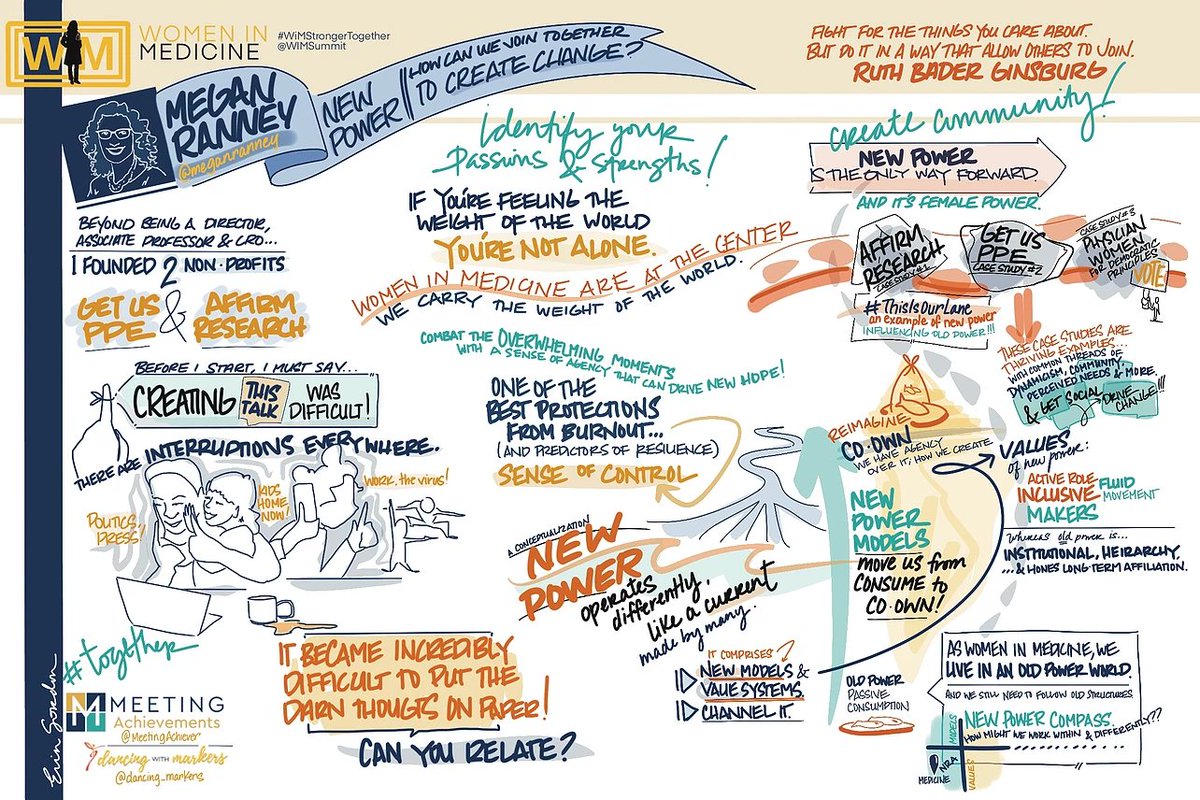 WIM
WOMEN IN
MEDICINE
#WiMStrongerTogether
@WIMSummit
MEGAN
RANNEY
@meganranney
NEW
POWER
HOW CAN WE JOIN TOGETHER
TO CREATE CHANGE?
FIGHT FOR THE THINGS YOU CARE ABOUT.
BUT DO IT IN A WAY THAT ALLOW OTHERS TO JOIN.
RUTH BADER GINSBURG
BEYOND BEING A DIRECTOR,
ASSOCIATE PROFESSOR & CRO...
I FOUNDED 2 NON-PROFITS
GET US
PPE
&
AFFIRM
RESEARCH
BEFORE I START, I MUST SAY...
CREATING THIS TALK WAS DIFFICULT!
THERE ARE INTERRUPTIONS EVERYWHERE.
POLITICS
PRESS!
KIDS
HOME
NOW!
WORK, the virus!
IT BECAME INCREDIBLY
DIFFICULT TO PUT THE
DARN THOUGTS ON PAPER!
CAN YOU RELATE?
#together
MEETING
Achievements
@MeetingAchiever
dancing WITH markers
@dancing_markers
Identify your
Passions & Strengths!
IF YOU'RE FEELING THE
WEIGHT OF THE WORLD
YOU'RE NOT ALONE.
WOMEN IN MEDICINE ARE AT THE CENTER
WE CARRY THE WEIGHT OF THE WORLD.
COMBAT THE OVERWHELMING MOMENTS
WITH A SENSE OF AGENCY THAT CAN DRIVE NEW HOPE!
ONE OF THE
BEST PROTECTIONS
FROM BURNOUT...
(AND PREDICTORS OF RESILIENCE)
SENSE OF CONTROL
A CONCEPTUALIZATION
NEW
POWER
operates
differently,
like a current
made by many.
IT COMPRISES?
NEW MODELS &
VALUE SYSTEMS.
CHANNEL IT.
create community!
NEW POWER
IS THE ONLY WAY FORWARD.
AND IT'S FEMALE POWER.
AFFIRM
RESEARCH
CASE STUDY #1
GET US
PPE
CASE STUDY #2
CASE STUDY #3
PHYSICIAN
WOMEN
FOR DEMOCRATIC
PRINCIPLES
VOTE
#ThisIsOurLane
an example of new power
INFLUENCING OLD POWER!!!
THESE CASE STUDIES ARE
THRIVING EXAMPLES...
WITH COMMON THREADS OF
DYNAMICISM, COMMUNITY,
PERCEIVED NEEDS & MORE.
& GET SOCIAL DRIVE
CHANGE!!!
REIMAGINE
CO-OWN
WE HAVE AGENCY
OVER IT; HOW WE CREATE
NEW
POWER
MODELS
move us from
CONSUME to
CO-OWN!
OLD POWER
PASSIVE
CONSUMPTION
VALUES
of new power:
ACTIVE ROLE
INCLUSIVE
MAKERS
FLUID
MOVEMENT
Whereas old power is...
INSTITUTIONAL, HEIRARCHY,
...& HONES LONG-TERM AFFILIATION.
AS WOMEN IN MEDICINE, WE
LIVE IN AN OLD POWER WORLD.
AND WE STILL NEED TO FOLLOW OLD STRUCTURES.
NEW POWER COMPASS.
HOW MIGHT WE WORK WITHIN & DIFFERENTLY??
MODELS
NRA
MEDICINE
VALUES